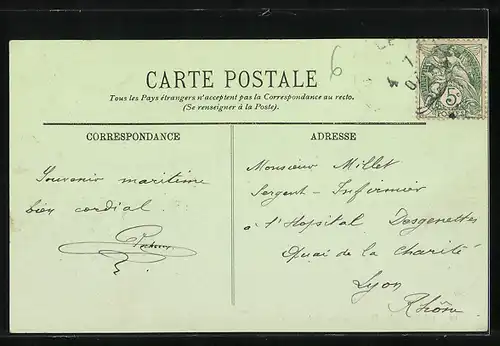 6
CARTE POSTALE
Tous les Pays étrangers n'acceptent pas la Correspondance au recto.
(Se renseigner à la Poste).
CORRESPONDANCE
ADRESSE
Souvenir maritime
bien cordial.
Monsieur Millet
Sergent-Infirmier
à l'Hopital Desgenettes
Quai de la Charité
Lyon
Rhône
5c